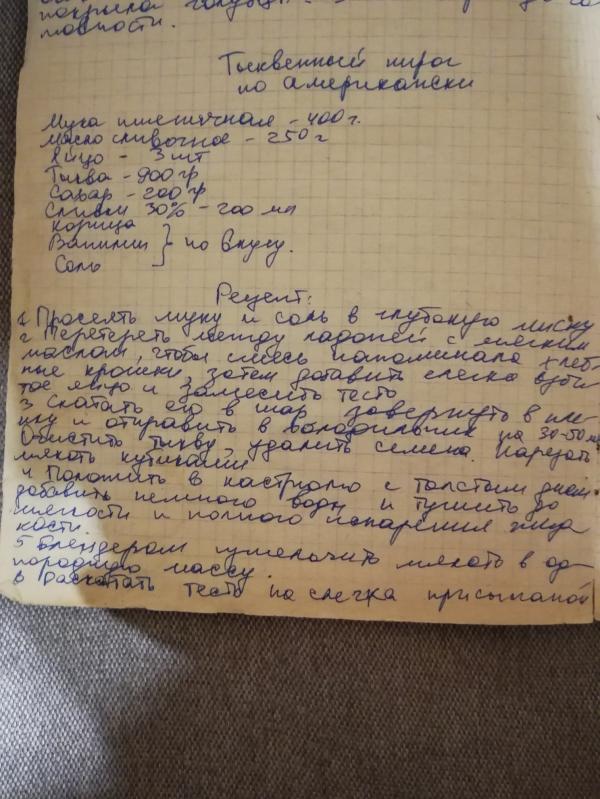 покрыла голубцы.
товности.
Тыквенный пирог
по американски
Мука пшеничная - 400 г.
Масло сливочное - 250 г
Яйцо - 3 шт
Тыква - 900 гр
Сахар - 200 гр
Сливки 30% - 200 мл
Корица
Ванилин } по вкусу.
Соль
Рецепт:
1 Просеять муку и соль в глубокую миску
2 Перетереть между ладоней с мягким
маслом, чтобы смесь напоминала хлеб-
ные крошки, затем добавить слегка взби
тое яйцо и замесить тесто
3 Скатать его в шар завернуть в пле
нку и отправить в холодильник на 30-50 м
Очистить тыкву, удалить семена. Нарезать
мякоть кубиками
4 Положить в кастрюлю с толстым дном
добавить немного воды и тушить до
мягкости и полного испарения жид
кости.
5 Блендером измельчить мякоть в од-
нородную массу.
6 Раскатать тесто на слегка присыпаной